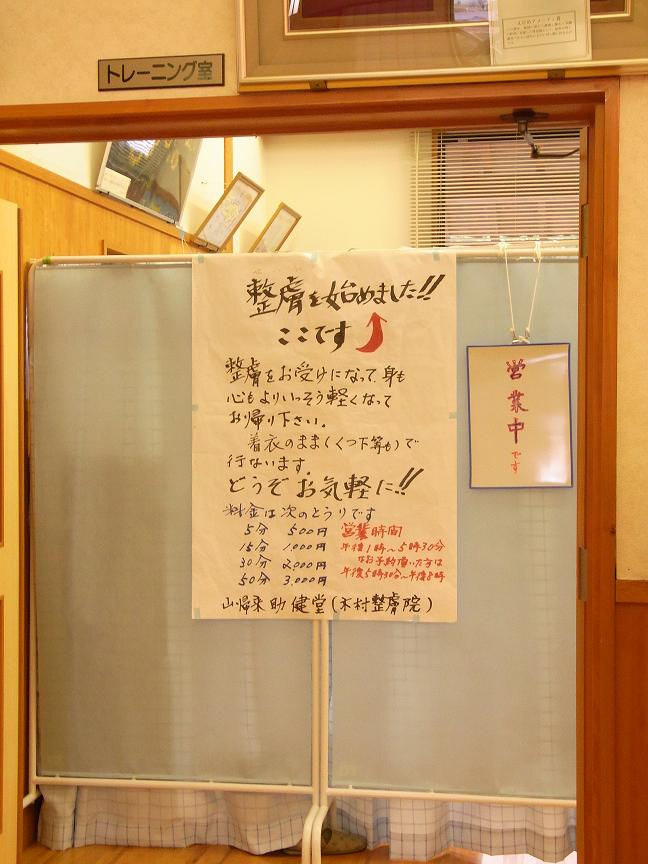 トレーニング室
整膚を始めました!!
ここです
整膚をお受けになって、身も
心もよりいっそう軽くなって
お帰り下さい。
着衣のまま(くつ下等も)で
行ないます。
どうぞお気軽に!!
料金は次のとうりです
5分 500円
15分 1,000円
30分 2,000円
50分 3,000円
営業時間
午後1時〜5時30分
なお予約頂いた方は
午後5時30分〜午後8時
山帰来 助健堂(木村整膚院)
営業中です